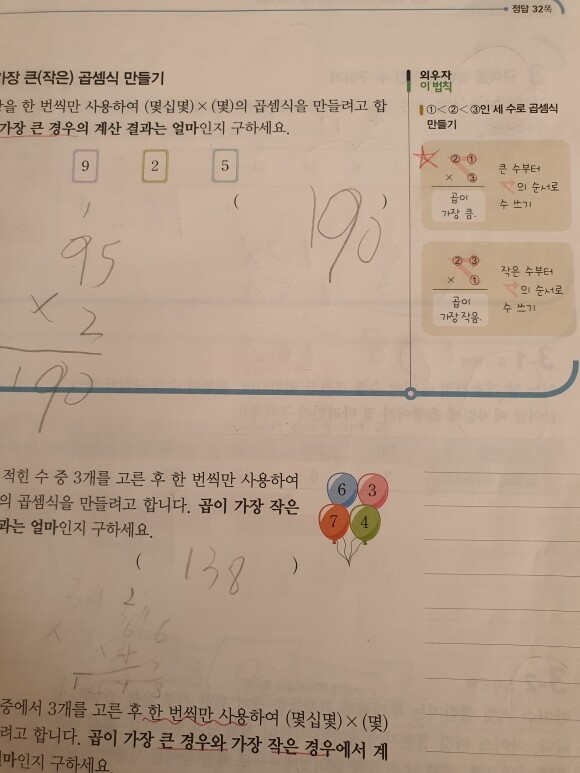 정답 32쪽
가장 큰(작은) 곱셈식 만들기
외우자
이 법칙
을 한 번씩만 사용하여 (몇십몇)×(몇)의 곱셈식을 만들려고 합
가장 큰 경우의 계산 결과는 얼마인지 구하세요.
①<②<③인 세 수로 곱셈식
만들기
9 2 5
( 190 )
② ①
× ③
곱이
가장 큼.
큰 수부터
의 순서로
수 쓰기
1
95
× 2
190
② ③
× ①
곱이
가장 작음.
작은 수부터
의 순서로
수 쓰기
적힌 수 중 3개를 고른 후 한 번씩만 사용하여
의 곱셈식을 만들려고 합니다. 곱이 가장 작은
과는 얼마인지 구하세요.
6 3
7 4
( 138 )
중에서 3개를 고른 후 한 번씩만 사용하여 (몇십몇)×(몇)
려고 합니다. 곱이 가장 큰 경우와 가장 작은 경우에서 계
얼마인지 구하세요.